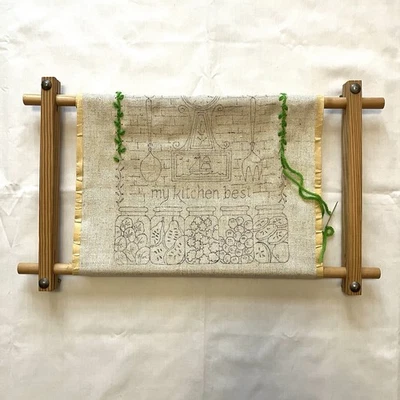 my kitchen best